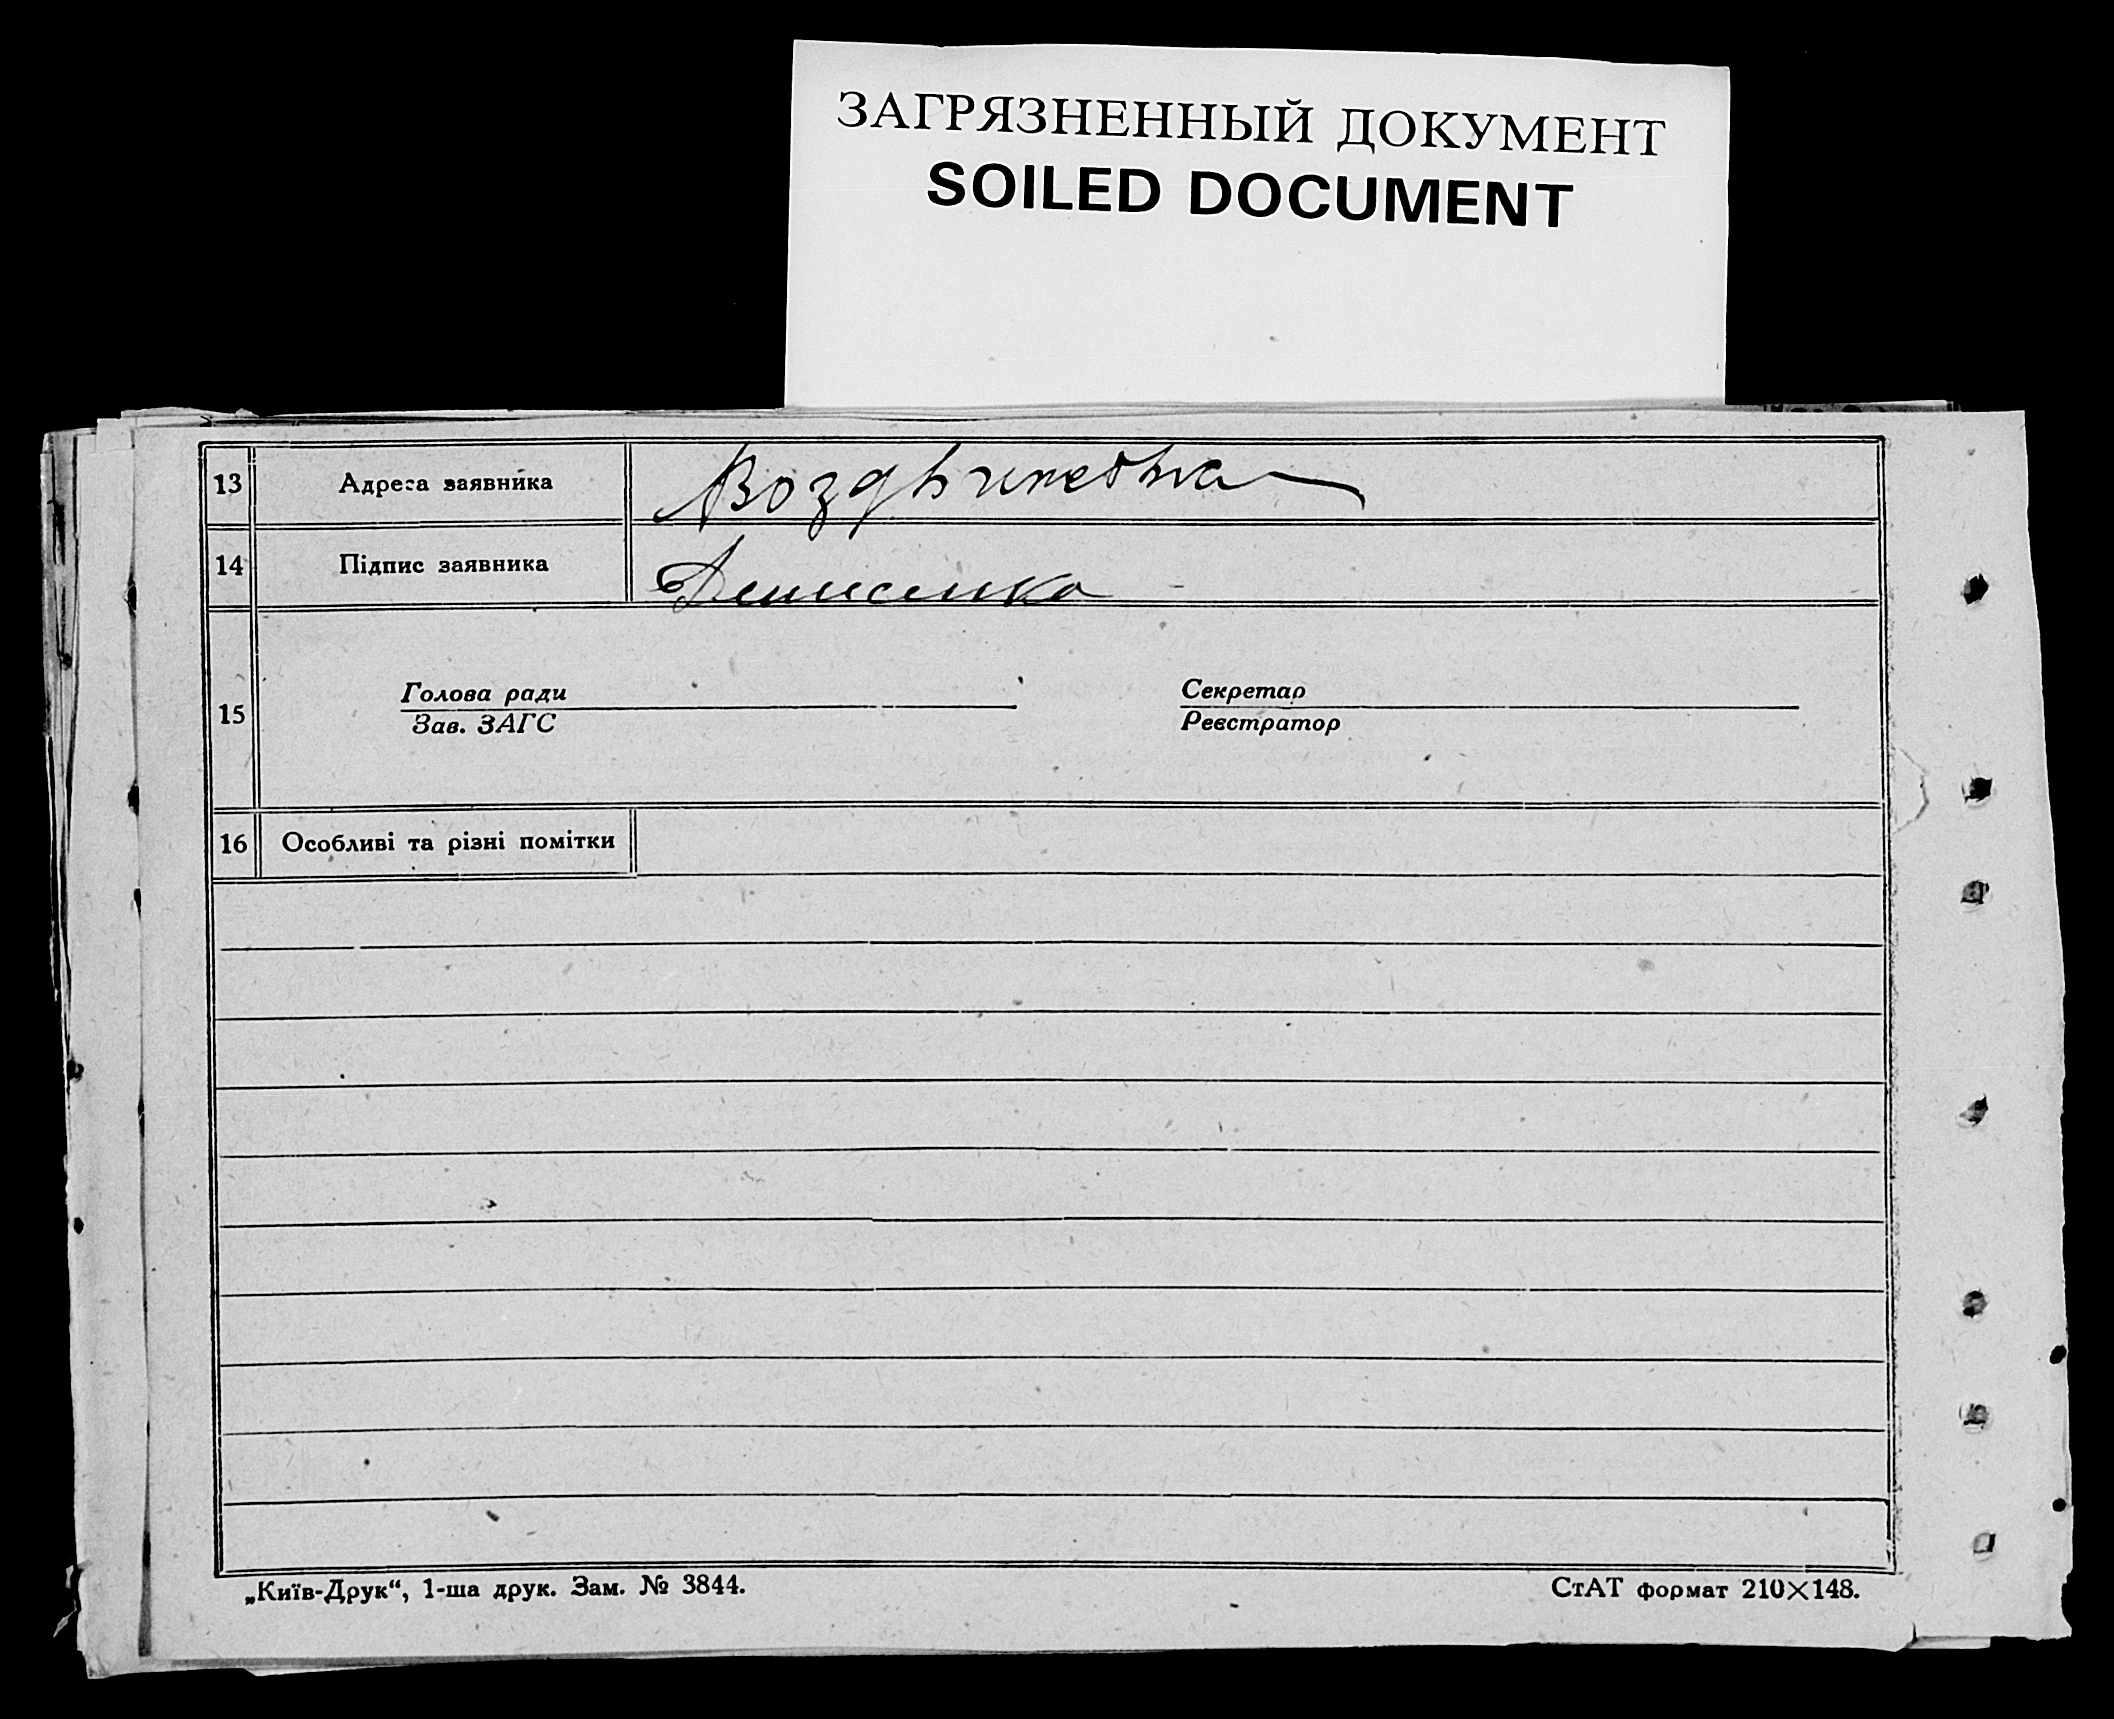 ЗАГРЯЗНЕННЫЙ ДОКУМЕНТ
SOILED DOCUMENT
13 Адреса заявника Воздвижевка
14 Підпис заявника Денисенко
15 Голова ради Секретар
Зав. ЗАГС Реєстратор
16 Особливі та різні помітки
„Київ-Друк“, 1-ша друк. Зам. № 3844. СтАТ формат 210×148.